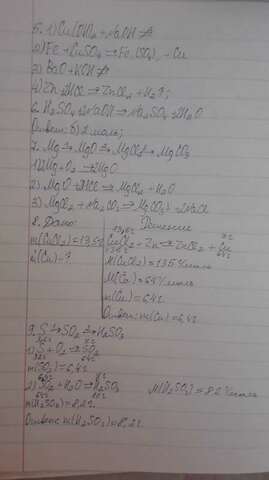 5. 1) Cu(OH)₂ + NaOH ≠
2) Fe + CuSO₄ → Fe(SO₄) + Cu
3) BaO + KOH ≠
4) Zn + 2HCl → ZnCl₂ + H₂↑;
6. H₂SO₄ + 2NaOH → Na₂SO₄ + 2H₂O
Ответ: б) 2 моль;
7. Mg → MgO → MgCl₂ → MgCO₃
1) 2Mg + O₂ → 2MgO
2) MgO + 2HCl → MgCl₂ + H₂O
3) MgCl₂ + Na₂CO₃ → MgCO₃ + 2NaCl
8. Дано: Решение
m(CuCl₂) = 13,5г CuCl₂ + Zn → ZnCl₂ + Cu
m(Cu) - ? M(CuCl₂) = 135 г/моль
M(Cu) = 64 г/моль
m(Cu) = 6,4г
Ответ: m(Cu) = 6,4г
9. S → SO₂ → H₂SO₃
1) S + O₂ → SO₂
m(SO₂) = 6,4г
2) SO₂ + H₂O → H₂SO₃ M(H₂SO₃) = 82 г/моль
m(H₂SO₃) = 8,2г
Ответ: m(H₂SO₃) = 8,2г